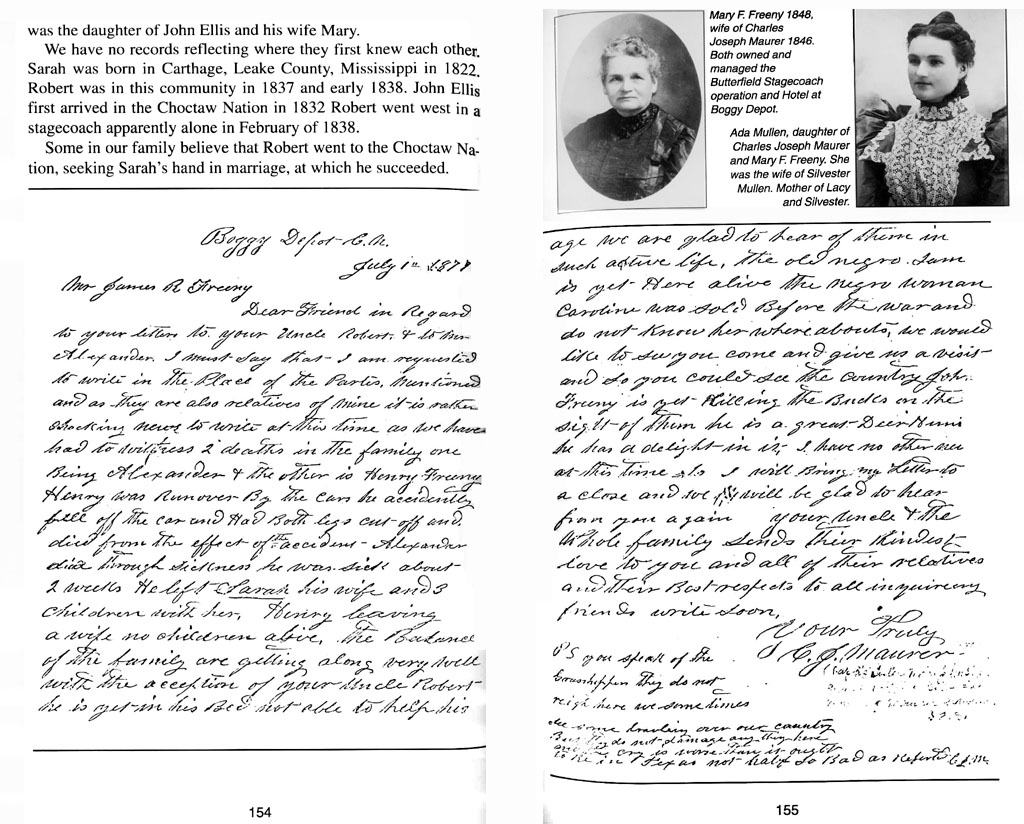 was the daughter of John Ellis and his wife Mary.
We have no records reflecting where they first knew each other.
Sarah was born in Carthage, Leake County, Mississippi in 1822.
Robert was in this community in 1837 and early 1838. John Ellis
first arrived in the Choctaw Nation in 1832 Robert went west in a
stagecoach apparently alone in February of 1838.
Some in our family believe that Robert went to the Choctaw Na-
tion, seeking Sarah's hand in marriage, at which he succeeded.
Boggy Depot C.N.
July 1st
Mr James R Freeny
Dear Friend in Regard
to your letters to your Uncle Robert. & to Mr
Alexander. I must Say that I am requested
to write in the Place of the Parties, Mentioned
and as they are also relatives of mine it is rather
Shocking news to write at this time as we have
had to witness 2 deaths in the family one
Being Alexander & the other is Henry Freeny
Henry was Runover By the Cars he accidently
fell off the car and Had Both legs cut off and
died from the effect of the accident - Alexander
died through Sickness he was Sick about
2 weeks He left Sarah his wife and 3
Children with her, Henry leaving
a wife no children alive, The Balance
of the family are getting along very well
with the acception of your Uncle Robert
he is yet in his Bed not able to help his
154
Mary F. Freeny 1848,
wife of Charles
Joseph Maurer 1846.
Both owned and
managed the
Butterfield Stagecoach
operation and Hotel at
Boggy Depot.
Ada Mullen, daughter of
Charles Joseph Maurer
and Mary F. Freeny. She
was the wife of Silvester
Mullen. Mother of Lacy
and Silvester.
age we are glad to hear of them in
such active life, the old negro Sam
is yet Here alive the negro woman
Caroline was sold Before the war and
do not Know her whereabouts, we would
like to see you come and give us a visit
and so you could see the country Joh.
Freeny is yet Killing the Bucks on the
sight of them he is a great Deer
he has a delight in it, I have no other
at this time So I will Bring my Letter to
a close and we will be glad to hear
from you again your Uncle & the
Whole family Sends their Kindest
love to you and all of their relatives
and their Best respects to all inquireing
friends write soon,
Your Truly
C. J. Maurer
P S you speak of the
Grasshoppers They do not
reigh here we some times
see some traveling over our country
But they do not damage any thing here
and the cry is worse than it ought
to be in Texas not half so Bad as Reported C J M
155